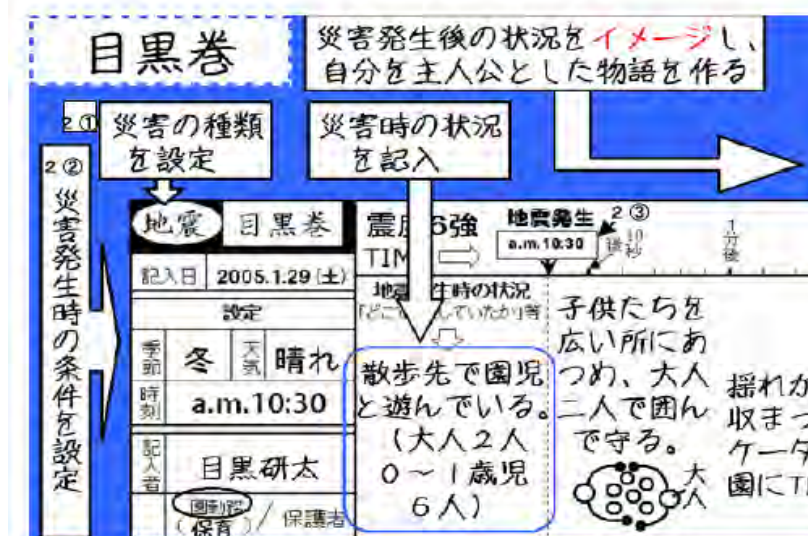 目黒巻
災害発生後の状況をイメージし、
自分を主人公とした物語を作る
2①
災害の種類
を設定
災害時の状況
を記入
2②
災害発生時の条件を設定
地震 目黒巻
記入日 2005.1.29(土)
設定
季節 冬 天気 晴れ
時刻 a.m.10:30
記入者 目黒研太
(保育)/保護者
震度6強
TIM
地震発生
a.m.10:30
2③
10秒後
1分後
生時の状況
していたか」等
散歩先で園児
と遊んでいる。
(大人2人
0~1歳児
6人)
子供たちを
広い所にあ
つめ、大人
二人で囲ん
で守る。
大人
揺れが
収まっ
ケータ
園にT